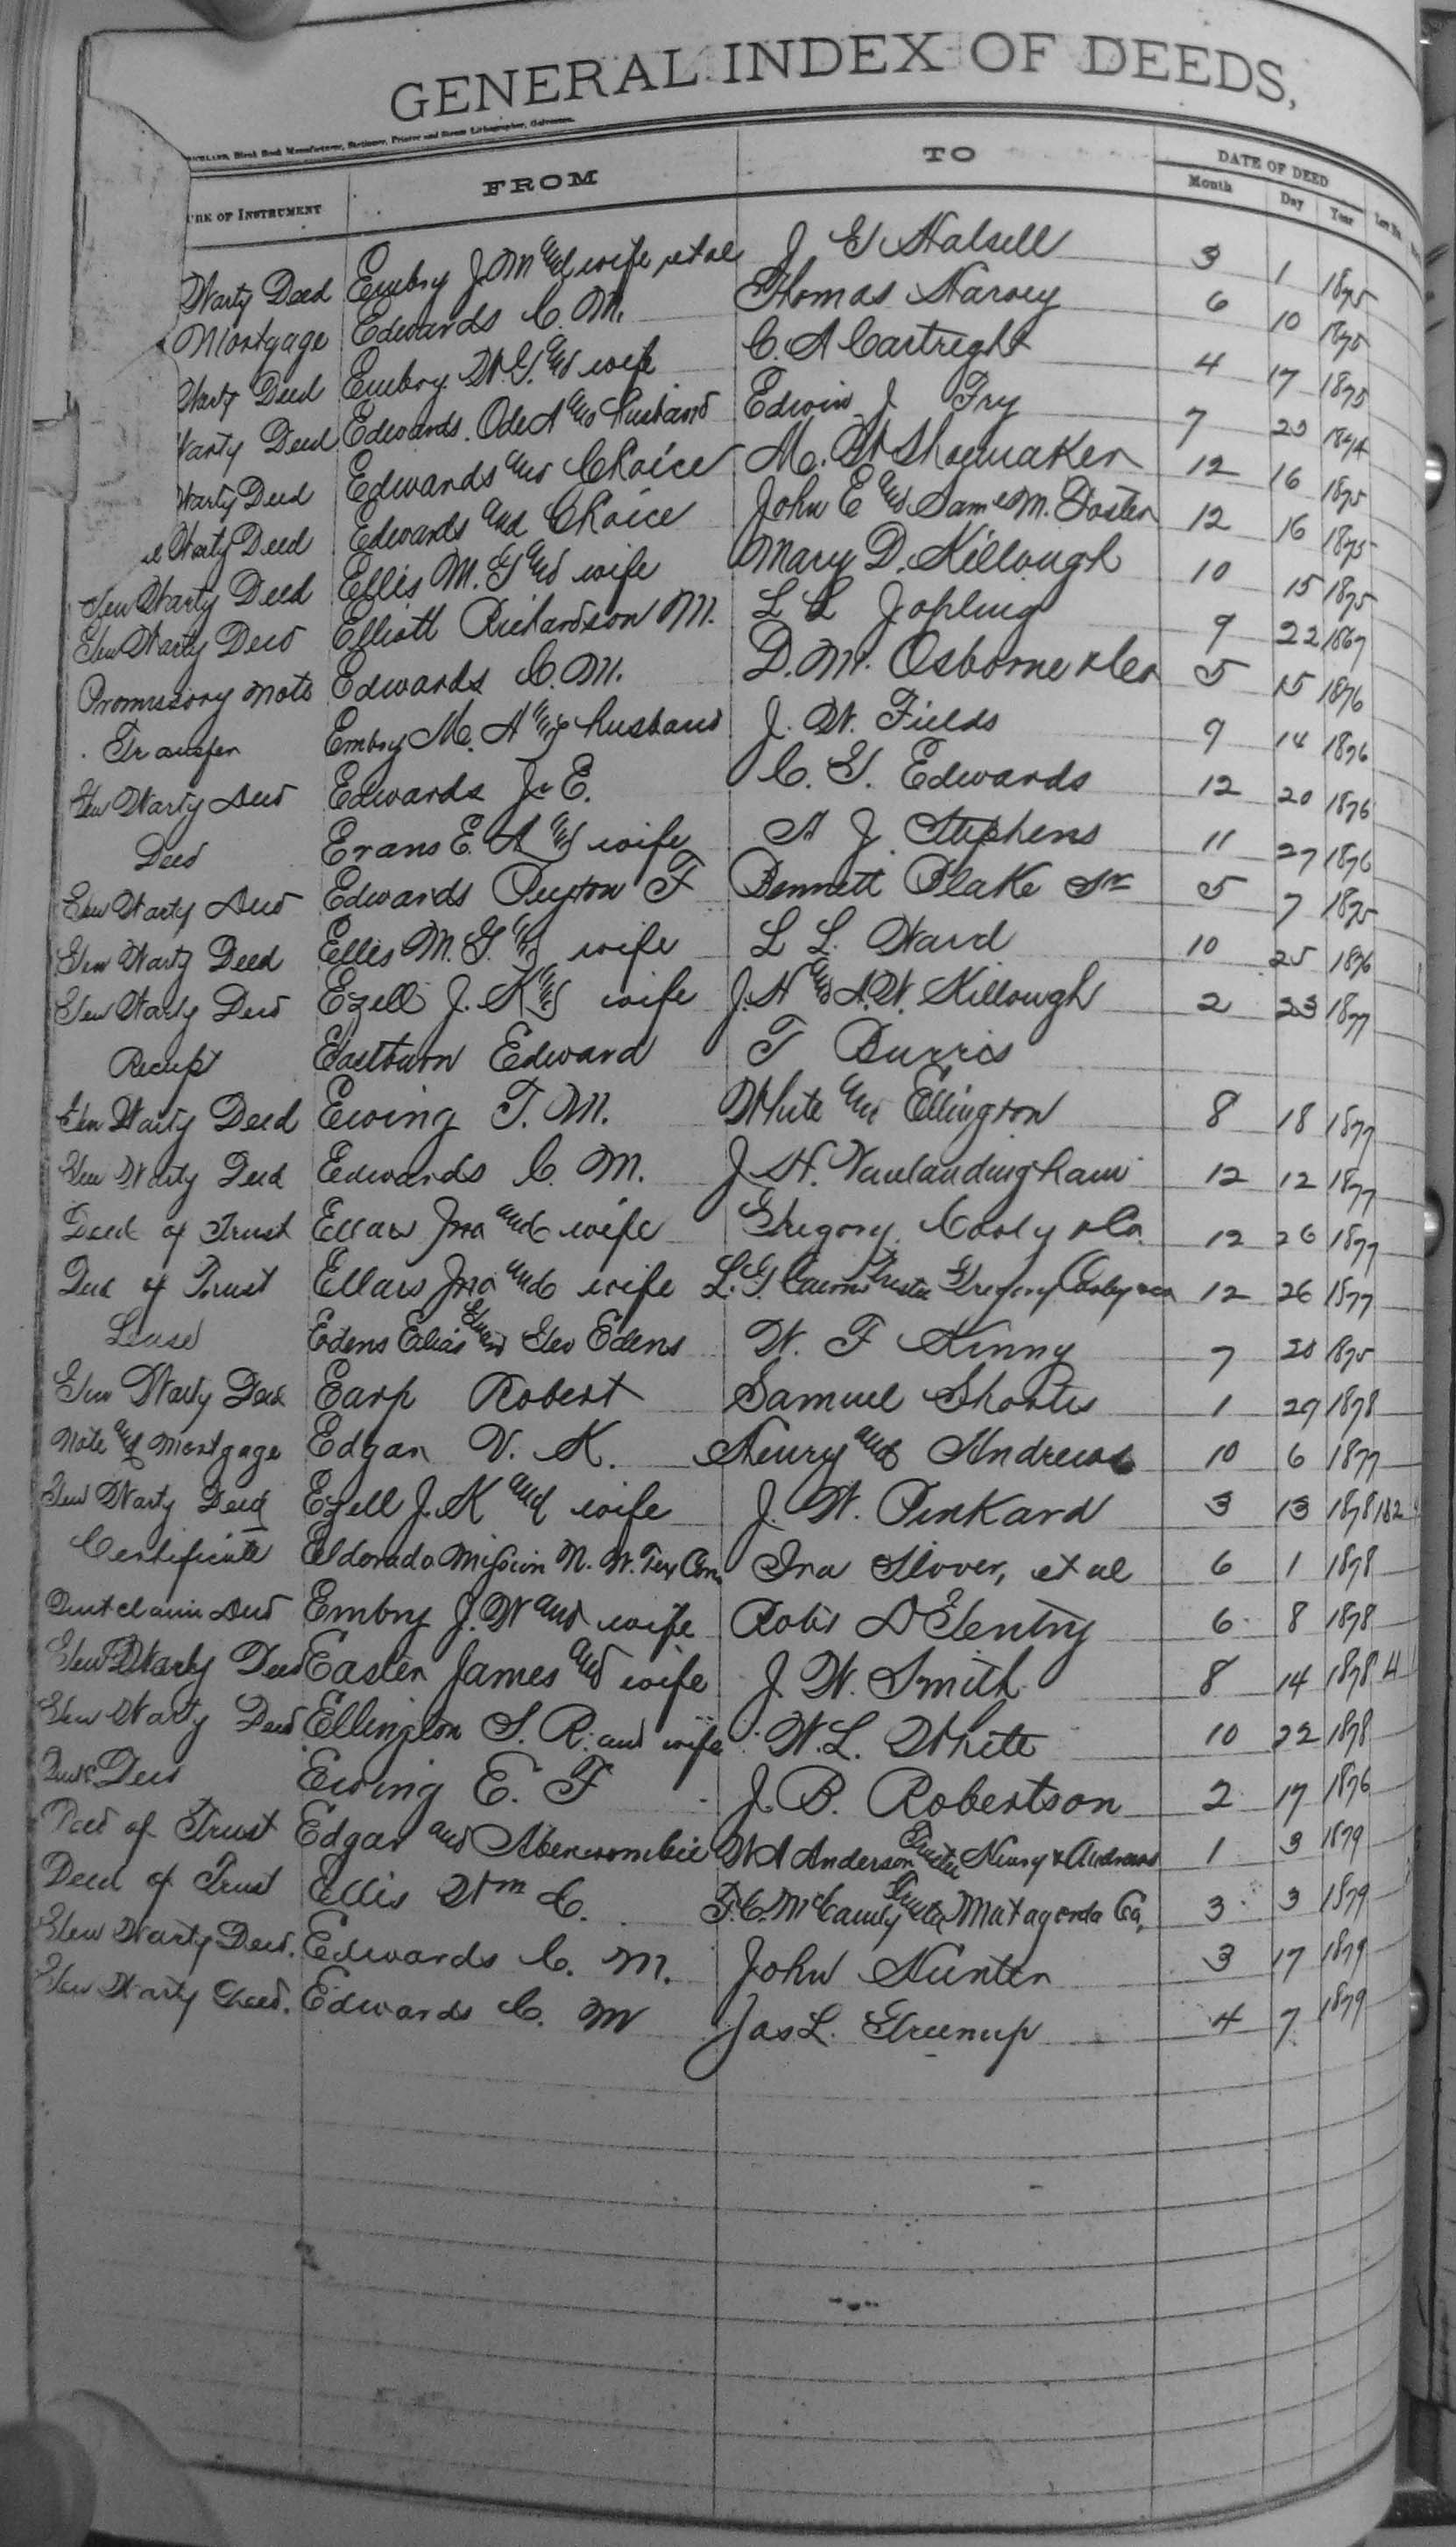 GENERAL INDEX OF DEEDS,
Blank Book Manufacturer, Stationer, Printer and Steam Lithographer, Galveston.
URE OF INSTRUMENT FROM TO DATE OF DEED
Month Day Year
Warty Deed Embry J. M and wife et al J G Halsell 3 1 1875
Mortgage Edwards C. M. Thomas Harvey 6 10 1875
Warty Deed Embry W. G. and wife C. A Cartreght 4 17 1875
Warty Deed Edwards. Ode A and husband Edwin J Fry 7 23 1874
Warty Deed Edwards and Choice M. W Shoemaker 12 16 1875
Warty Deed Edwards and Choice John E and James M. Foster 12 16 1875
Gen Warty Deed Ellis M. G and wife Mary D. Killough 10 15 1875
Gen Warty Deed Elliott Richardson M. L L Jopling 9 22 1867
Promissory note Edwards C. M. D. M. Osborne & Co 5 15 1876
Transfer Embry M. A and husband J. W. Fields 9 14 1876
Gen Warty Deed Edwards J. E. C. G. Edwards 12 20 1876
Deed Evans E. A and wife A J Stephens 11 27 1876
Gen Warty Deed Edwards Peyton F Bennett Blake Sr 5 7 1875
Gen Warty Deed Ellis M. G. and wife L L. Ward 10 25 1876
Gen Warty Deed Ezell J. K and wife J. H and A. W. Killough 2 23 1877
Reciept Eastburn Edward T Burris
Gen Warty Deed Ewing T. M. White and Ellington 8 18 1877
Gen Warty Deed Edwards C. M. J. H. Vanlandingham 12 12 1877
Deed of Trust Ellars Jno and wife Gregory Cooly & Co. 12 26 1877
Deed of Trust Ellars Jno and wife L. G. Trustee Gregory Cooley & Co 12 26 1877
Lease Edens Elias Geo Edens W. F Kinny 7 28 1875
Gen Warty Deed Earp Robert Samuel Shortes 1 29 1878
Note and Mortgage Edgar V. K. Henry and Andrews 10 6 1877
Gen Warty Deed Ezell J. K and wife J. W. Pinkard 3 13 1878 182
Certificate Eldorado Mission N. W. Tex Con Ira Slover, et al 6 1 1878
Quit claim Deed Embry J. W and wife Robt D Gentry 6 8 1878
Gen Warty Deed Easter James and wife J. W. Smith 8 14 1878 4
Gen Warty Deed Ellington S. R. and wife W. L. White 10 22 1878
Deed Ewing E. F J. B. Robertson 2 17 1876
Deed of Trust Edgar and Abercrombie W A Anderson Trustee Henry & Andrews 1 3 1879
Deed of Trust Ellis Wm C. Trustee Matagorda Co, 3 3 1879
Gen Warty Deed. Edwards C. M. John Hunter 3 17 1879
Gen Warty Deed. Edwards C. M Jas L. Greenup 4 7 1879